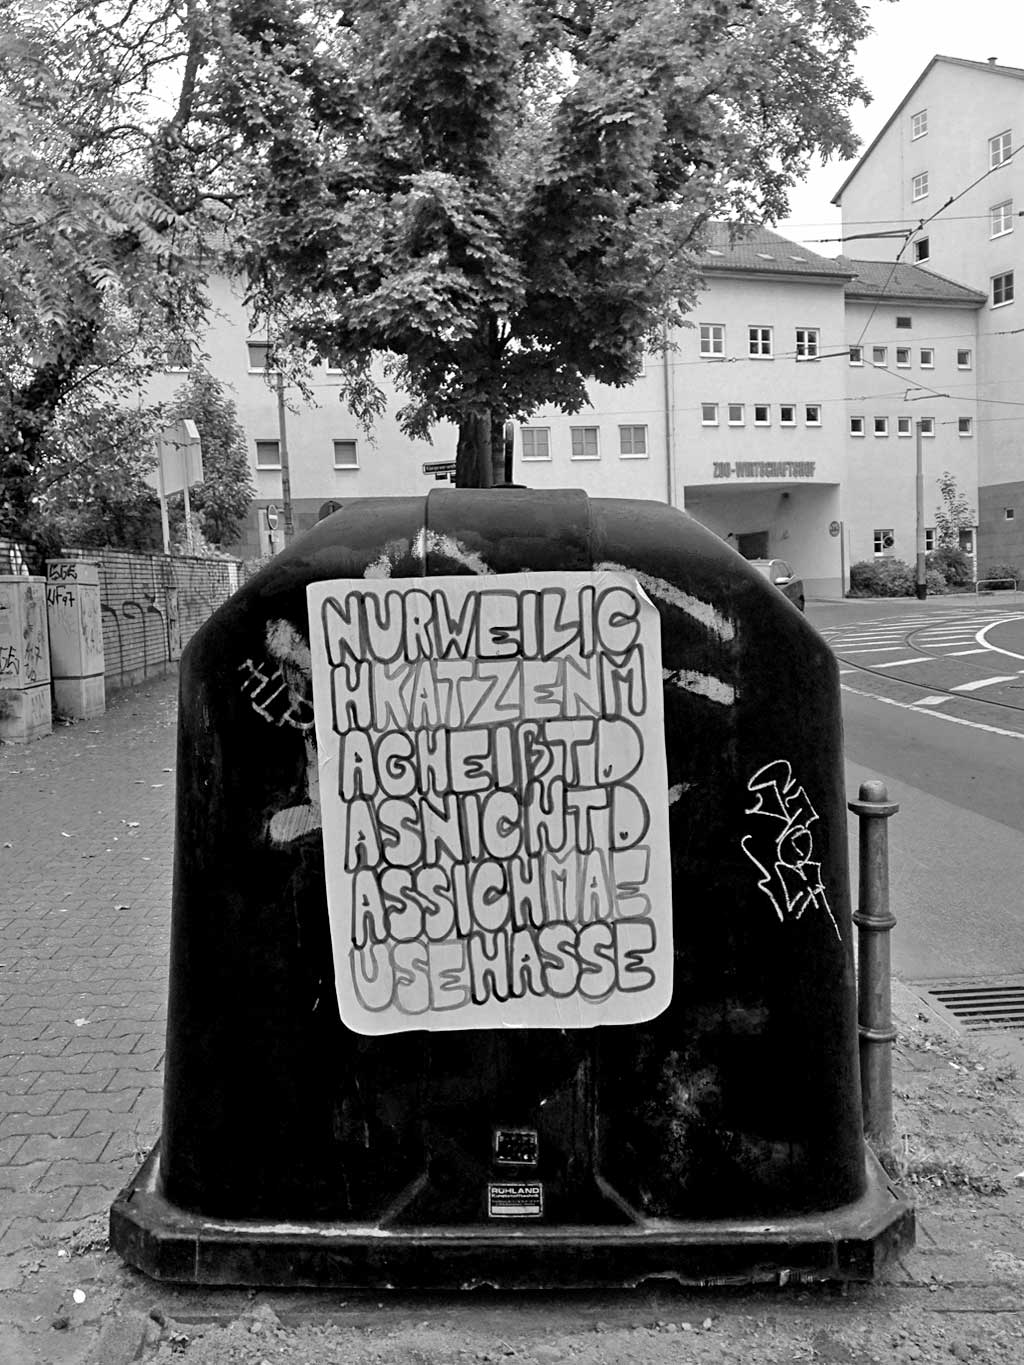 ZOO-WIRTSCHAFTSHOF
NURWEILIC
HKATZENM
AGHEIßTD
ASNICHTD
ASSICHMAE
USEHASSE
RUHLAND